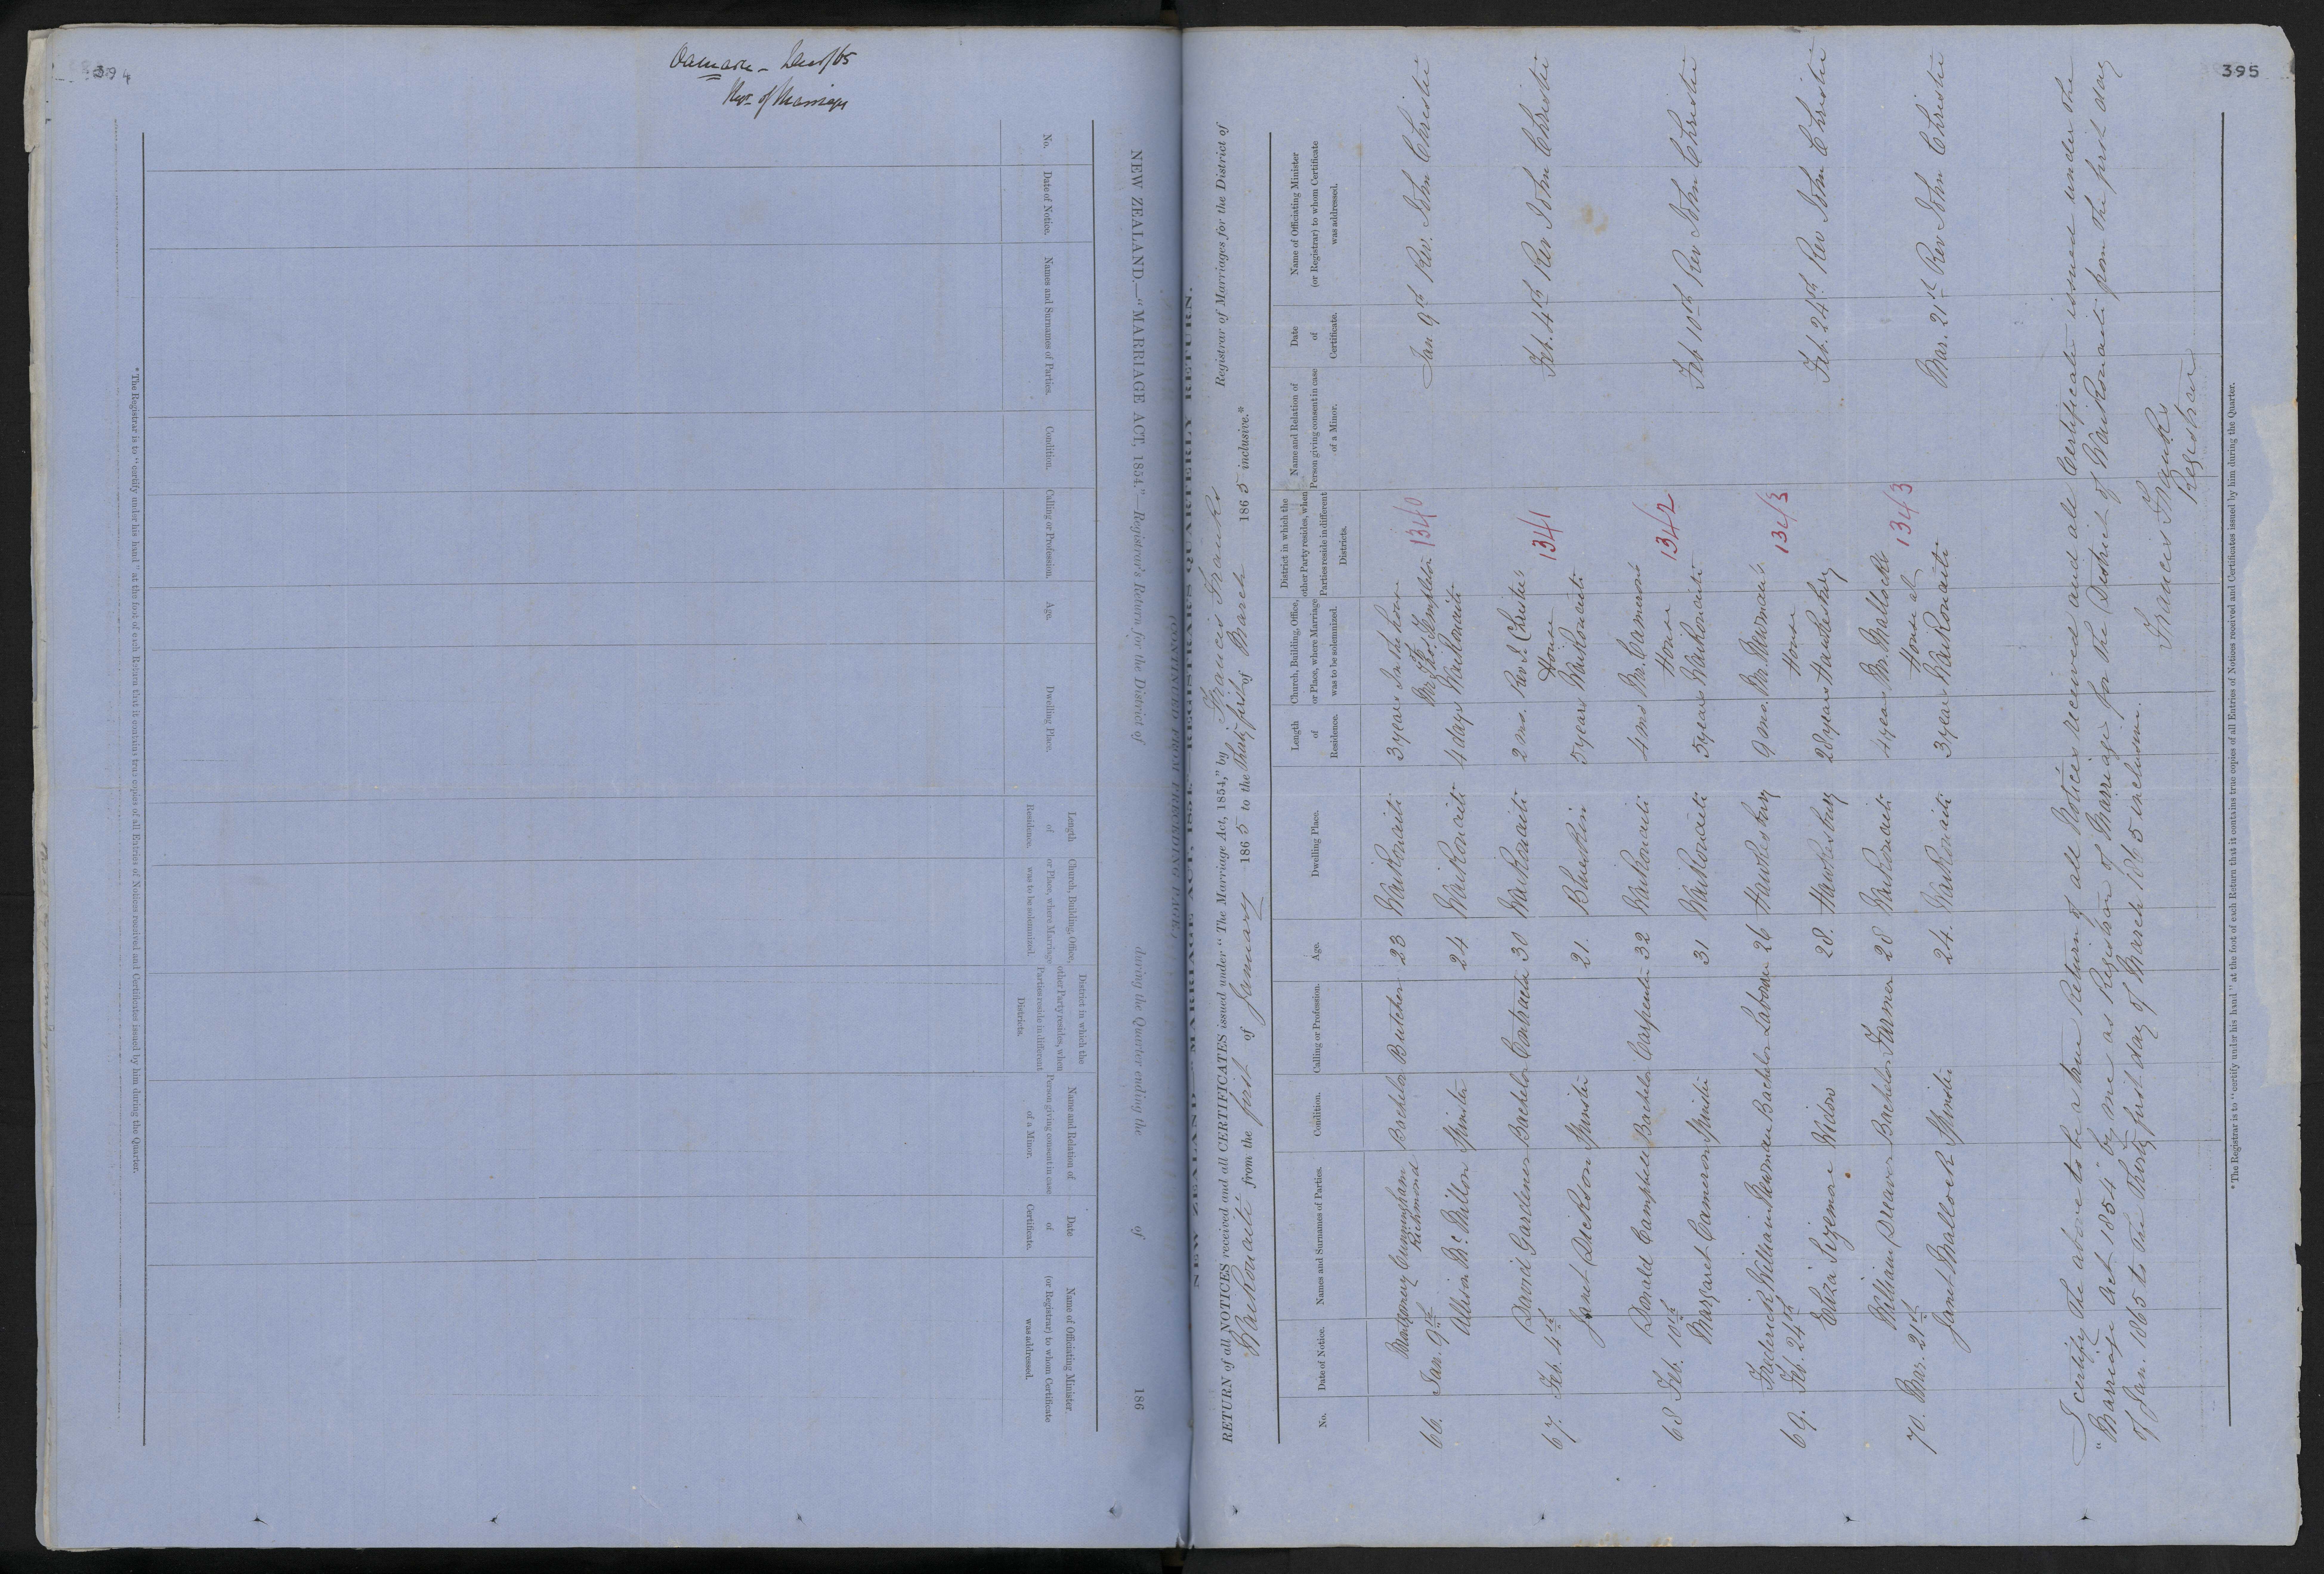 394
Oamaru - Dec/65
Retn of Marriages
NEW ZEALAND.—"MARRIAGE ACT, 1854."—Registrar's Return for the District of during the Quarter ending the of 186
No.
Date of Notice.
Names and Surnames of Parties.
Condition.
Calling or Profession.
Age.
Dwelling Place.
Length of Residence.
Church, Building, Office, or Place, where Marriage was to be solemnized.
District in which the other Party resides, when Parties reside in different Districts.
Name and Relation of Person giving consent in case of a Minor.
Date of Certificate.
Name of Officiating Minister (or Registrar) to whom Certificate was addressed.
* The Registrar is to "certify under his hand" at the foot of each Return that it contains true copies of all Entries of Notices received and Certificates issued by him during the Quarter.
395
(CONTINUED FROM PRECEDING PAGE.)
NEW ZEALAND.—"MARRIAGE ACT, 1854."—REGISTRAR'S QUARTERLY RETURN.
RETURN of all NOTICES received and all CERTIFICATES issued under "The Marriage Act, 1854," by Francis Franks Registrar of Marriages for the District of
Waikouaiti from the first of January 1865 to the Thirty first of March 1865 inclusive.*
No.
Date of Notice.
Names and Surnames of Parties.
Condition.
Calling or Profession.
Age.
Dwelling Place.
Length of Residence.
Church, Building, Office, or Place, where Marriage was to be solemnized.
District in which the other Party resides, when Parties reside in different Districts.
Name and Relation of Person giving consent in case of a Minor.
Date of Certificate.
Name of Officiating Minister (or Registrar) to whom Certificate was addressed.
Montgomery Cunningham Richmond Bachelor Butcher 23 Waikouaiti 3 years In the house
66. Jan. 9th Mr Thos. Templeton 1340 Jan 9th Rev. John Christie
Allison McMillon Spinster 24 Waikouaiti 4 days Waikouaiti
David Gardener Bachelor Contractor 30 Waikouaiti 2 mos. Rev J. Christie's
67. Feb. 4th House 1341 Feb. 4th Rev John Christie
Janet Dickson Spinster 21. Blueskin 5 years Waikouaiti
Donald Campbell Bachelor Carpenter 32 Waikouaiti 4 mos Mr. Cameron's
68 Feb. 10th House 1342 Feb 10th Rev John Christie
Margaret Cameron Spinster 31 Waikouaiti 5 years Waikouaiti
Frederick William Newman Bachelor Labourer 26 Hawkesbury 9 mos. Mr. Newman's
69. Feb. 24th House 1343 Feb. 24th Rev John Christie
Eliza Sizemore Widow 28. Hawkesbury 28 years Hawkesbury
William Deaver Bachelor Farmer 28 Waikouaiti 4 years Mr. Mallocks
70. Mar. 21st House at 1343 Mar. 21st Rev John Christie
Janet Mallock Spinster 24. Waikouaiti 3 years Waikouaiti
I certify the above to be a true Return of all Notices received and all Certificates issued under the
"Marriage Act 1854" by me as Registrar of Marriage for the District of Waikouaiti from the first day
of Jan. 1865 to the Thirty first day of March 1865 inclusive.
Francis Franks
Registrar
* The Registrar is to "certify under his hand" at the foot of each Return that it contains true copies of all Entries of Notices received and Certificates issued by him during the Quarter.